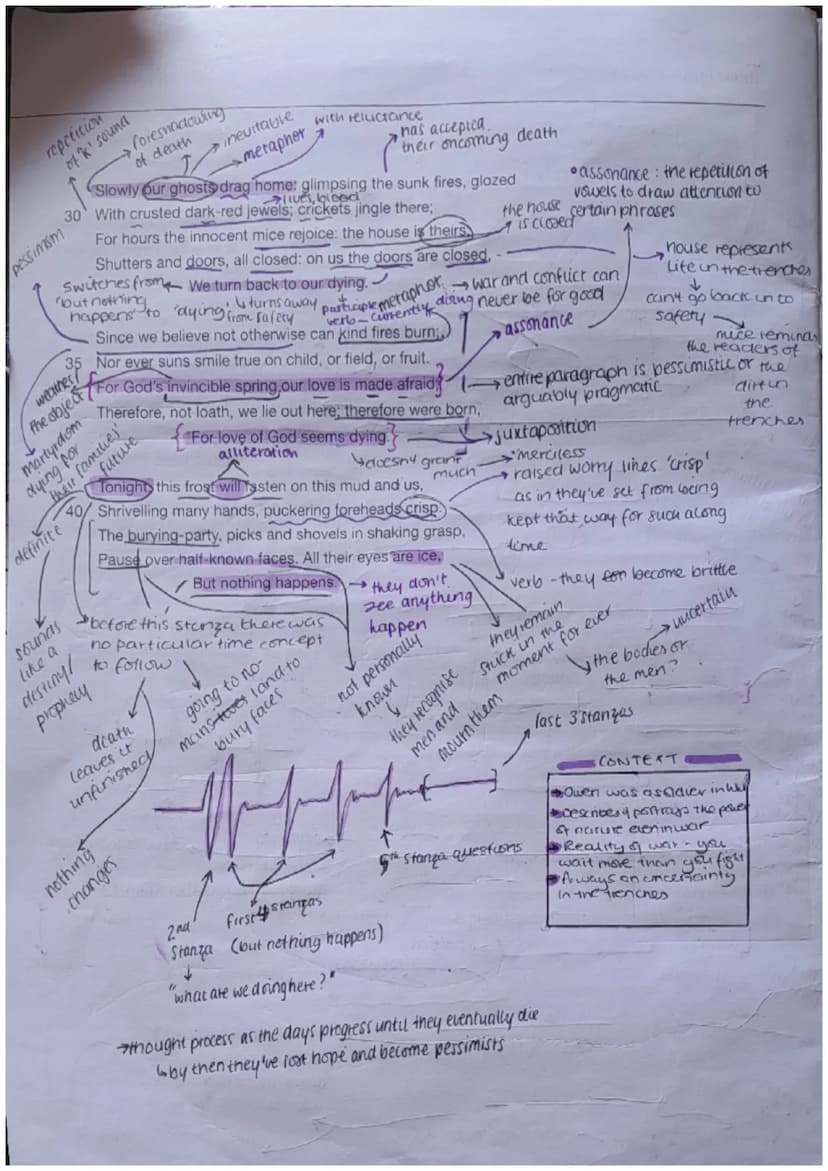 repetition
of 'k' sound
foreshadowing
of death
inevitable
metaphor
with reluctance
has accepted
their oncoming death
Slowly our ghosts drag home: glimpsing the sunk fires, glozed
lives, blood
30 With crusted dark-red jewels; crickets jingle there;
For hours the innocent mice rejoice: the house is theirs;
Shutters and doors, all closed: on us the doors are closed, -
We turn back to our dying.
• assonance : the repetition of
vowels to draw attention to
certain phrases
the house
is closed
pessimism
switches from
'but nothing
happens' to 'dying'
turns away
from safety
participle
verb - currently dying
metaphor
→ war and conflict can
never be for good
house represents
life in the trenches
can't go back in to
safety
mice remind
the readers of
the
dirt in
the
trenches
Since we believe not otherwise can kind fires burn;
assonance
35 Nor ever suns smile true on child, or field, or fruit.
For God's invincible spring our love is made afraid;
Therefore, not loath, we lie out here; therefore were born,
For love of God seems dying.
entire paragraph is pessimistic or
arguably pragmatic
juxtaposition
the object
martyrdom
dying for
their families'
future
alliteration
doesn't grant
much
merciless
Tonight, this frost will fasten on this mud and us,
40 Shrivelling many hands, puckering foreheads crisp.
The burying-party, picks and shovels in shaking grasp,
Pause over half-known faces. All their eyes are ice,
But nothing happens.
raised worry lines 'crisp'
as in they've set from being
kept that way for such a long
time
verb - they become brittle
definite
sounds
like a
destiny/
prophecy
before this stanza there was
no particular time concept
to follow
→ they don't
see anything
happen
they remain
stuck in the
moment for ever
uncertain
the bodies or
the men?
going to no
mans land to
bury faces
not personally
known
they recognise
men and
mourn them
death
leaves it
unfinished
nothing
changes
last 3 stanzas
5th stanza questions
first 4 stanzas
(but nothing happens)
2nd
stanza
"what are we doing here?"
CONTEXT
Owen was a soldier in
Describes & portrays the power
of nature even in war
Reality of war - you
wait more than you fight
Always an uncertainty
in the trenches
→ thought process as the days progress until they eventually die
↳ by then they've lost hope and become pessimists